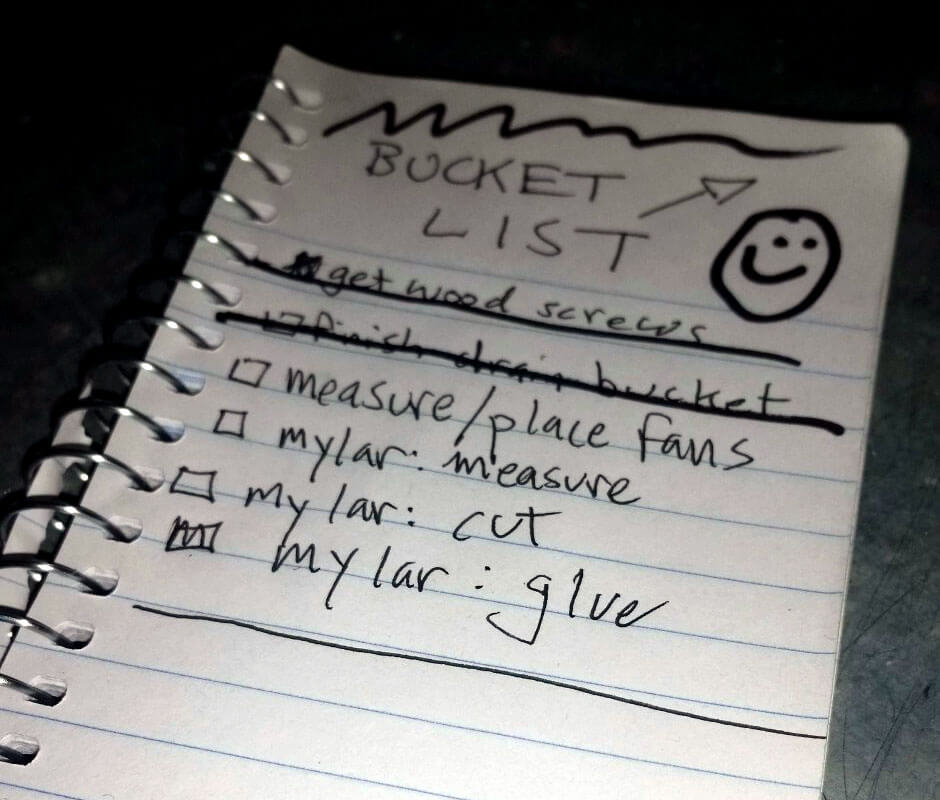 BUCKET
LIST
get wood screws
finish drain bucket
measure/place fans
mylar: measure
mylar: cut
mylar: glue